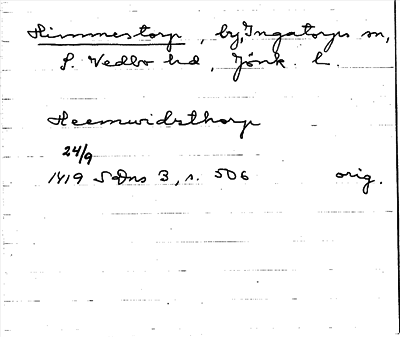 Himmestorp, by, Ingatorps sn,
S. Vedbo hd, Jönk. l.
Heemwidsthorp
24/9
1419 SDns 3, s. 506 orig.